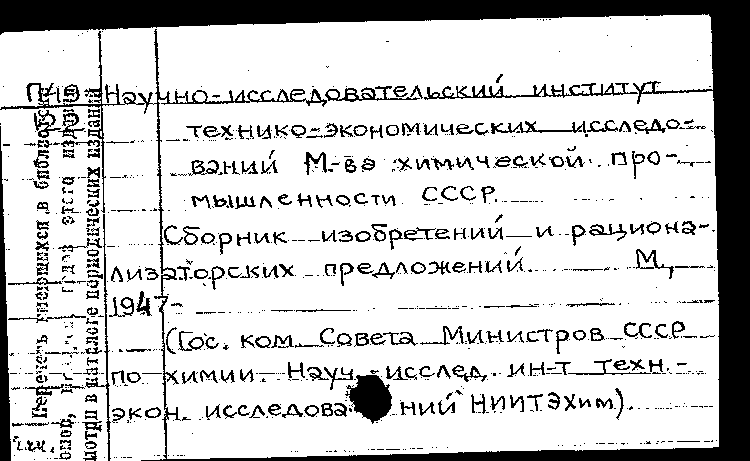 Научно-исследовательский институт
технико-экономических исследо-
ваний М-ва химической про-
мышленности СССР.
Сборник изобретений и рациона-
лизаторских предложений М.,
1947-
(Гос. ком. Совета Министров СССР
по химии. Науч.-исслед. ин-т техн.-
экон. исследований НИИТЭхим).
Перечень имеющихся в библиотеке
этого издания
смотри в каталоге периодических изданий